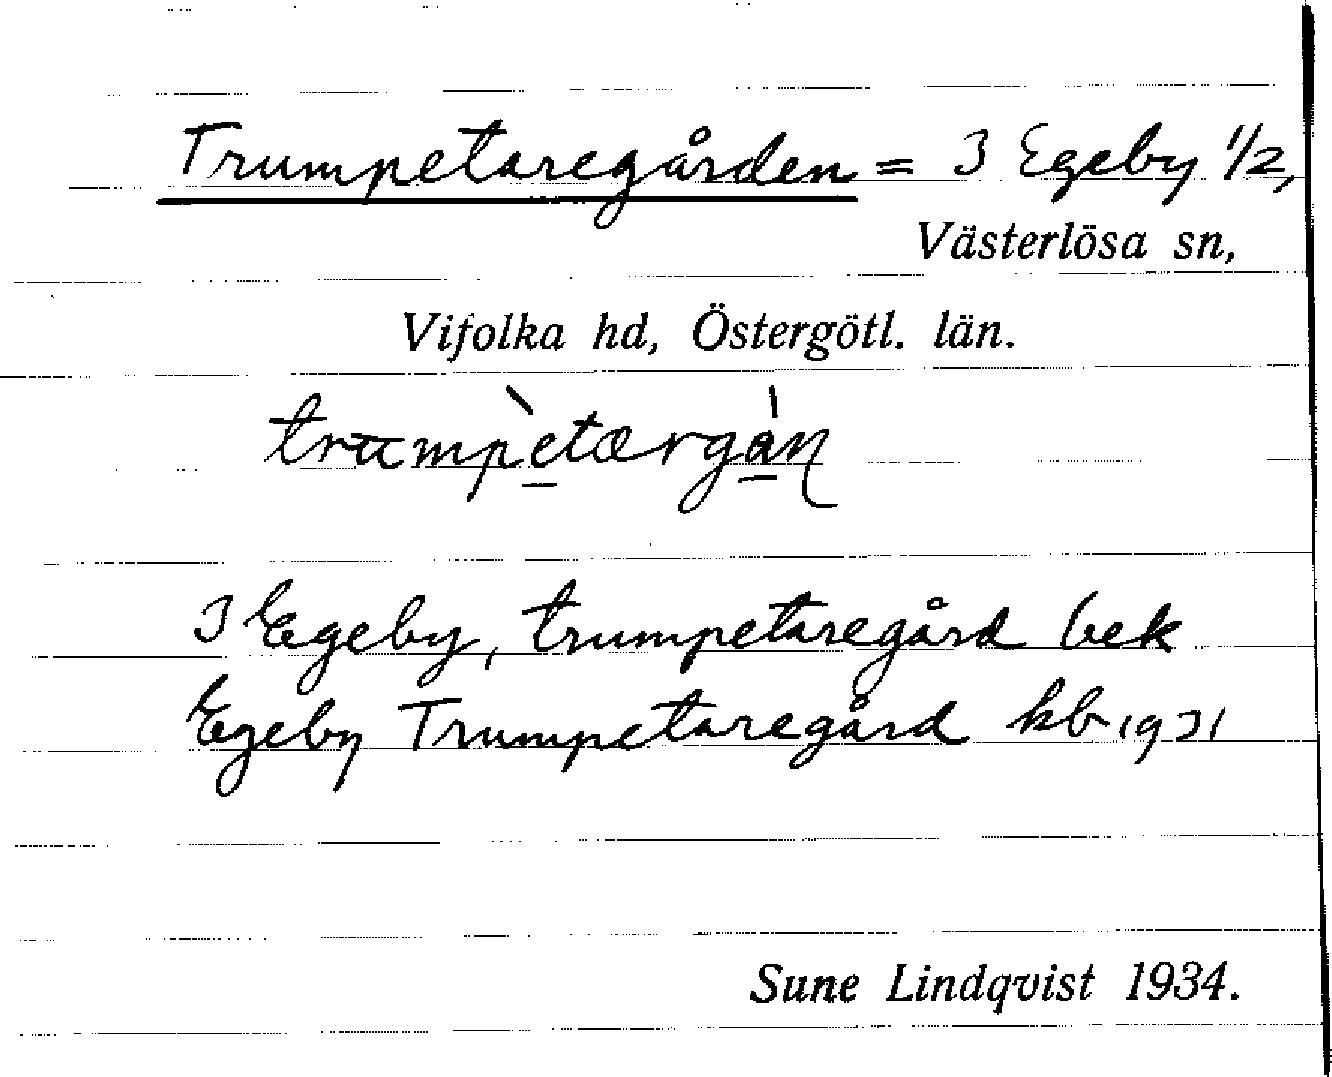 Trumpetaregården = 3 Egeby 1/2,
Västerlösa sn,
Vifolka hd, Östergötl. län.
3 Egeby, trumpetaregård bek
Egeby Trumpetaregård kb 1931
Sune Lindqvist 1934.